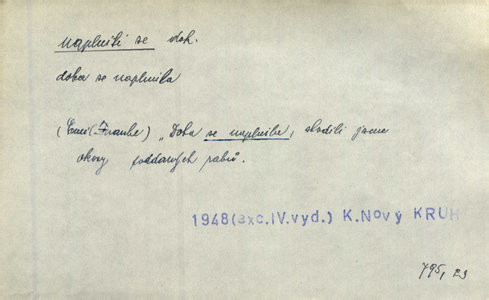 naplniti se dok.
doba se naplnila
( ) „Doba se naplnila, složili jsme
okovy poddaných rabů.
1948(exc.IV.vyd.) K.Nový KRUH
795, 23